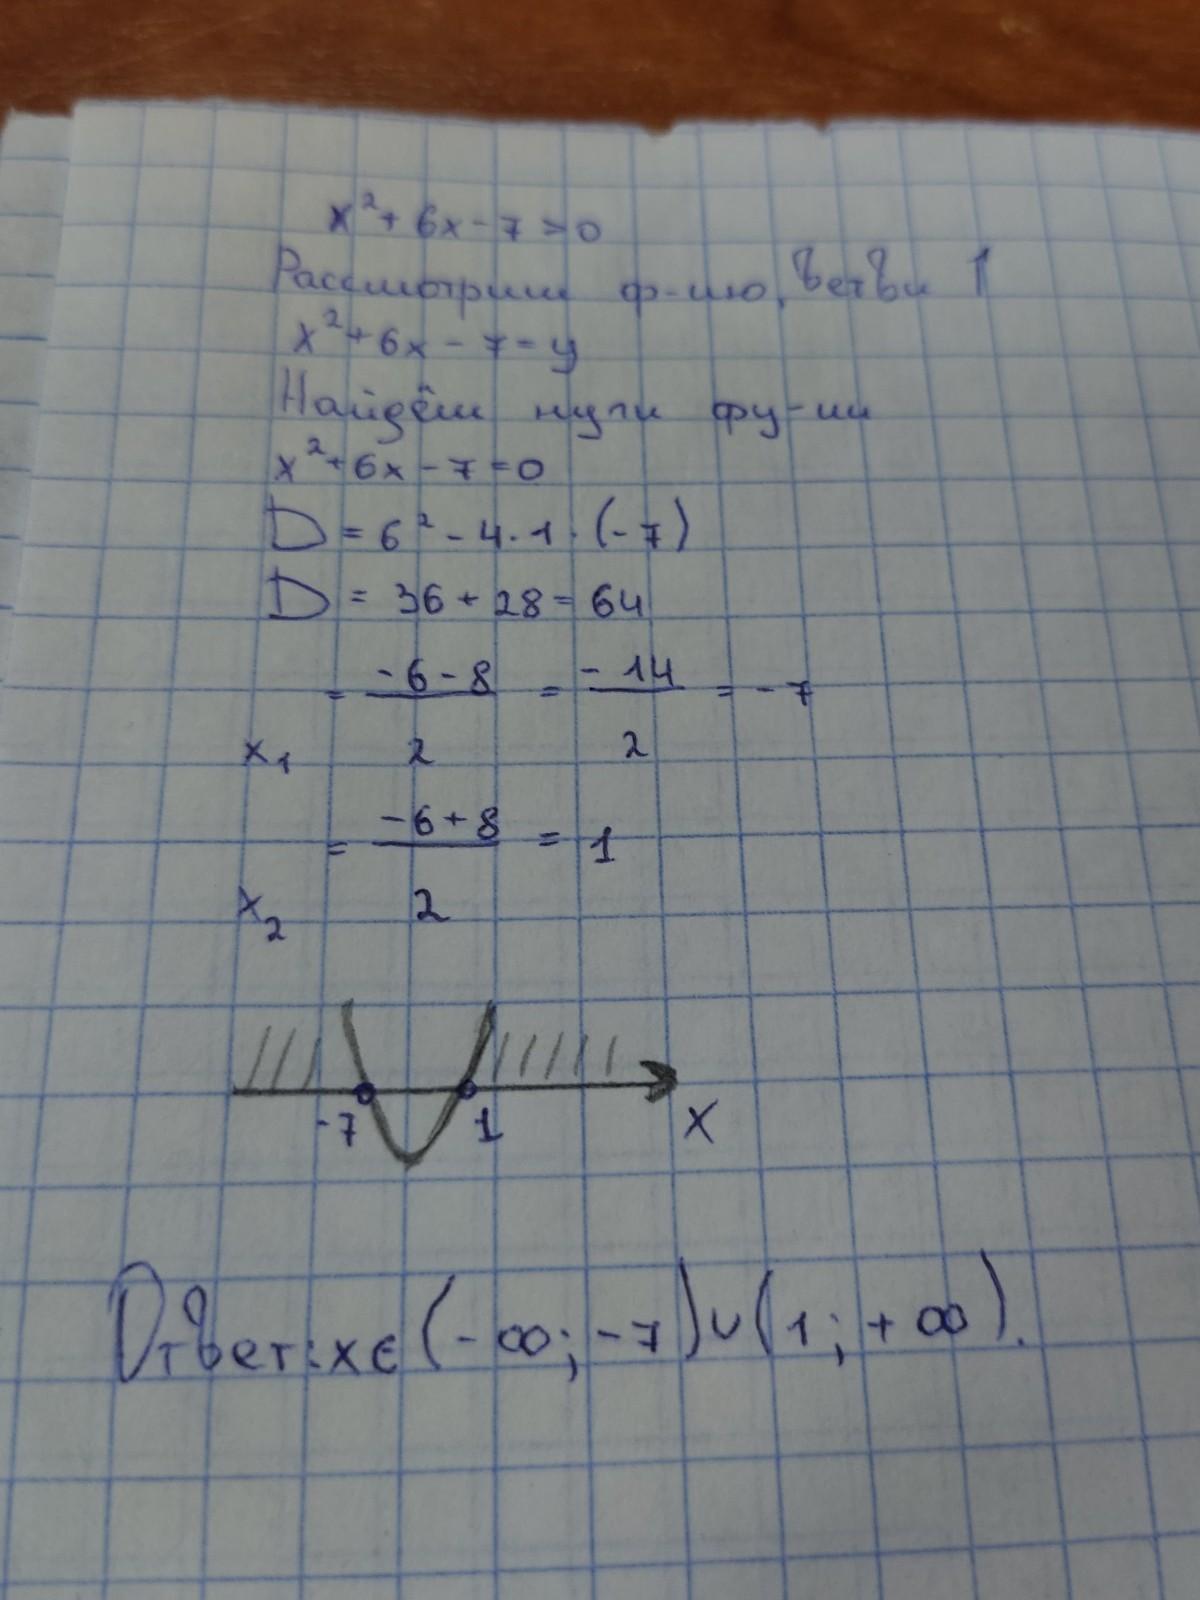 x² + 6x - 7 > 0
Рассмотрим ф-цию, ветви ↑
x² + 6x - 7 = y
Найдём нули фу-ии
x² + 6x - 7 = 0
D = 6² - 4 · 1 · (-7)
D = 36 + 28 = 64
x₁ = (-6 - 8)/2 = -14/2 = -7
x₂ = (-6 + 8)/2 = 1
-7 1 x
Ответ: x ∈ (-∞; -7) ∪ (1; +∞).